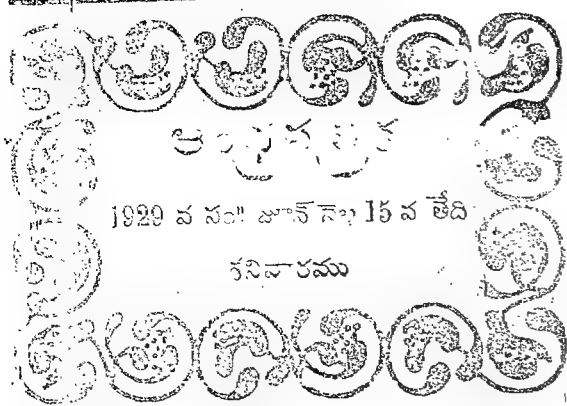 ఆంధ్రపత్రిక
1929 వ సం॥ జూన్ నెల 15 వ తేది
శనివారము